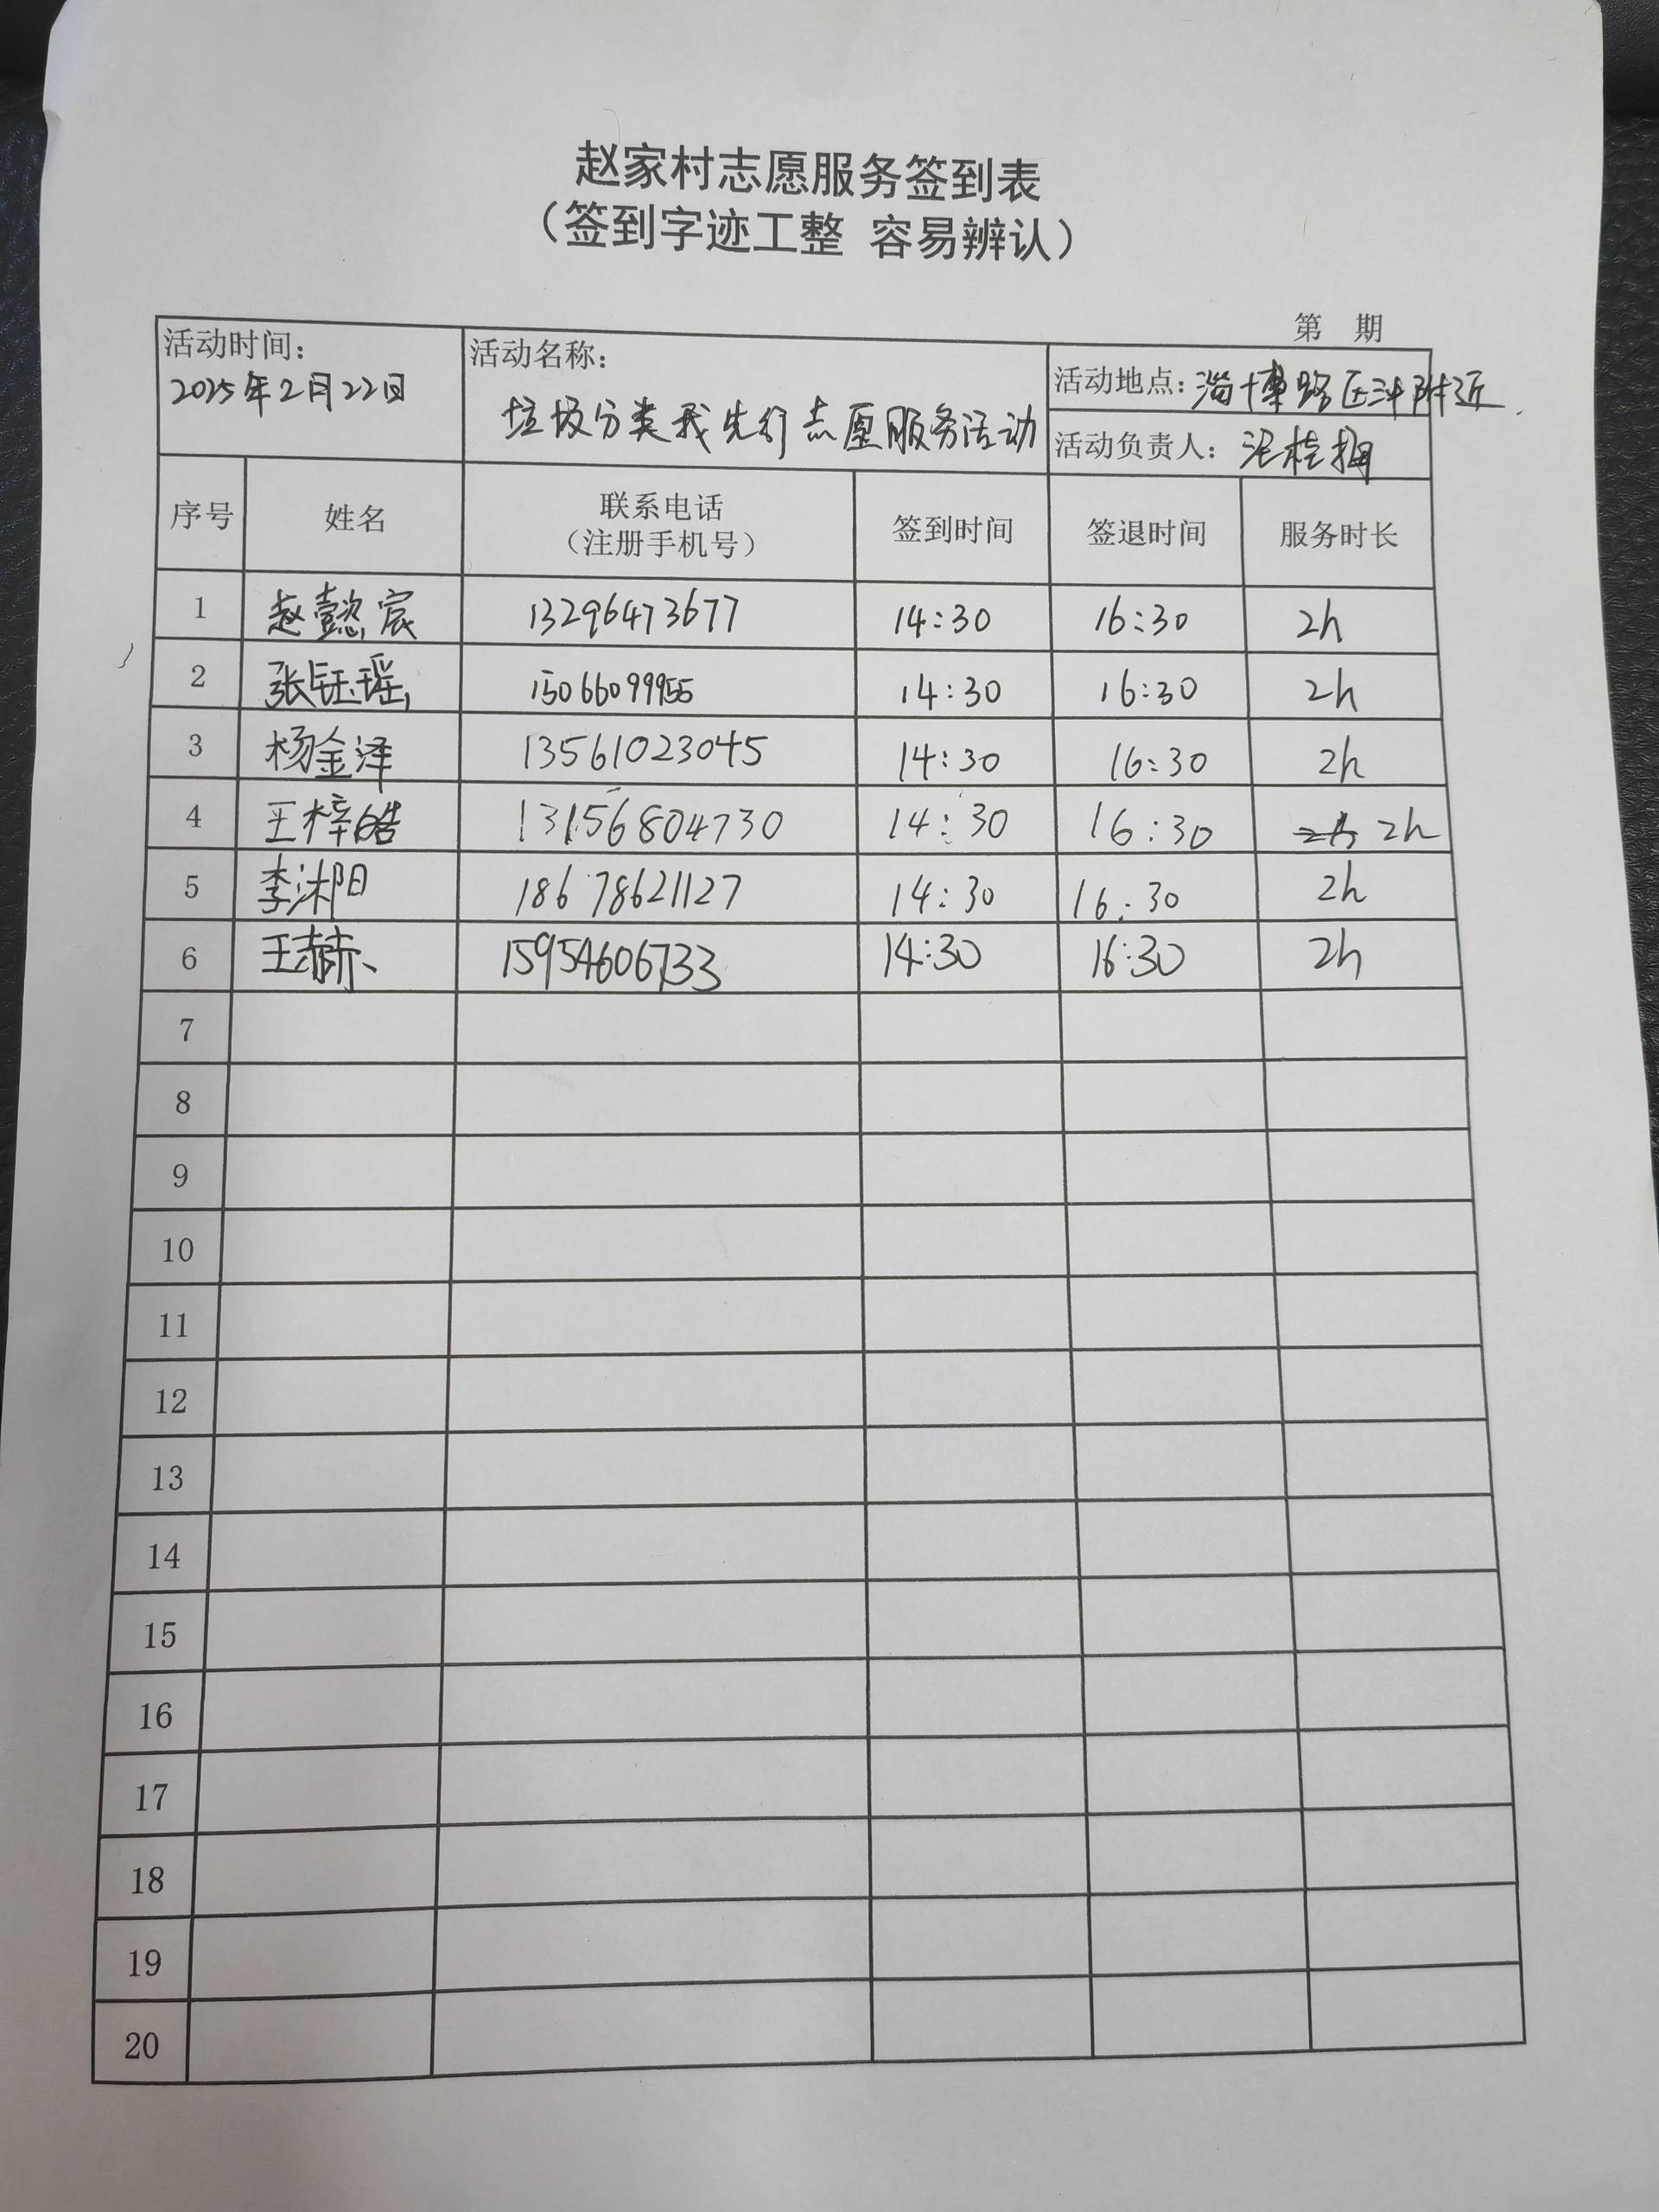 赵家村志愿服务签到表
（签到字迹工整 容易辨认）
第 期
活动时间：
2025年2月22日
活动名称：
垃圾分类我先行志愿服务活动
活动地点：淄博路附近
活动负责人：桂梅
序号 姓名 联系电话（注册手机号） 签到时间 签退时间 服务时长
1 赵懿宸 13296473677 14:30 16:30 2h
2 张钰瑶 15066099955 14:30 16:30 2h
3 杨金泽 13561023045 14:30 16:30 2h
4 王梓皓 13156804730 14:30 16:30 2h
5 李沭阳 18678621127 14:30 16:30 2h
6 王赫 15954606733 14:30 16:30 2h
7
8
9
10
11
12
13
14
15
16
17
18
19
20